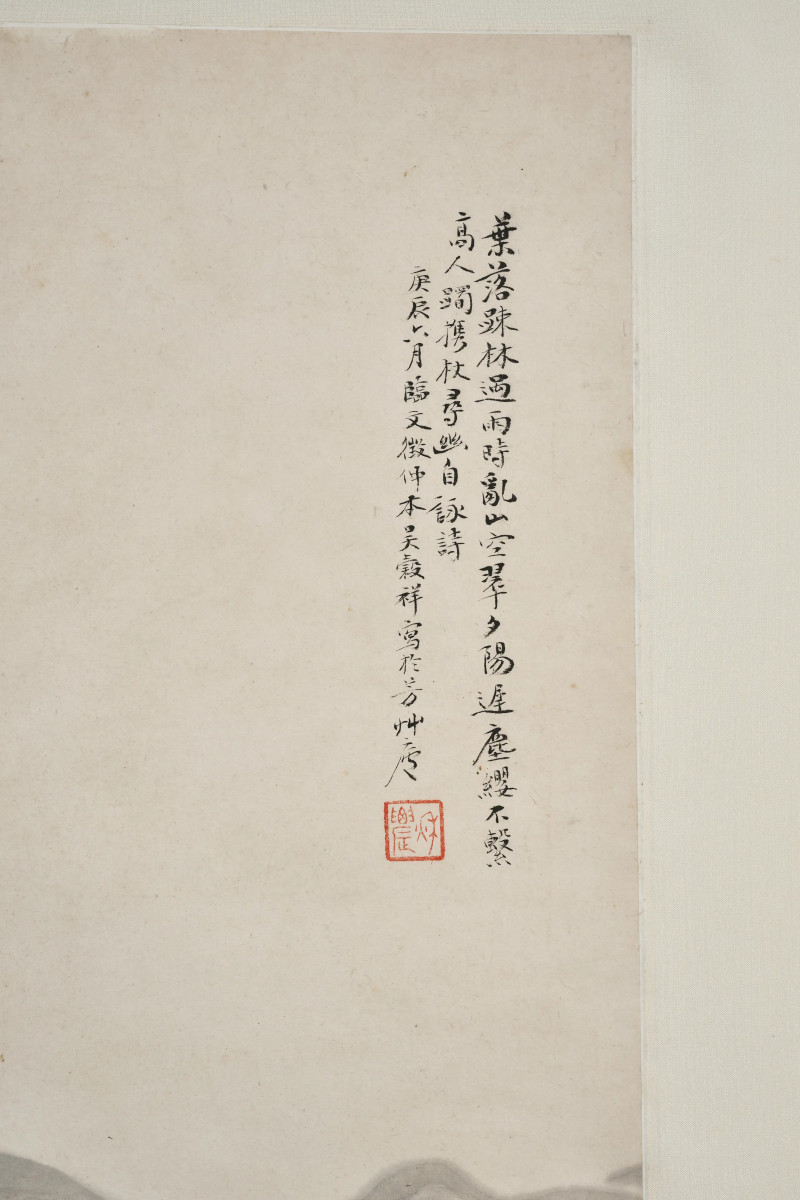 葉落踈林過雨時亂山空翠夕陽遲塵纓不繫
高人躅攜杖尋幽自詠詩
庚辰六月臨文徵仲本吳穀祥寫於芳艸廬
秋農